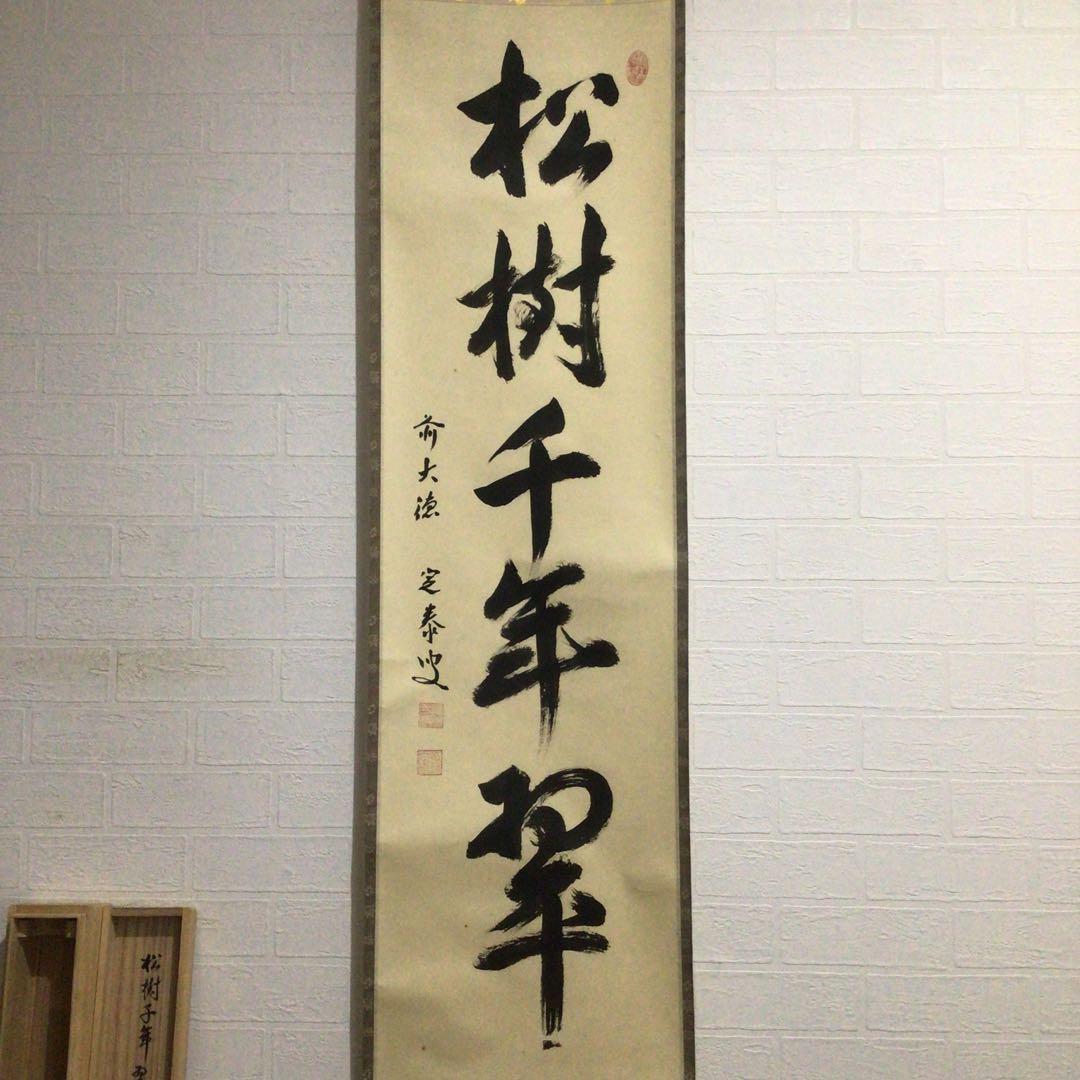 松樹千年翠
前大徳 定泰叟
松樹千年翠